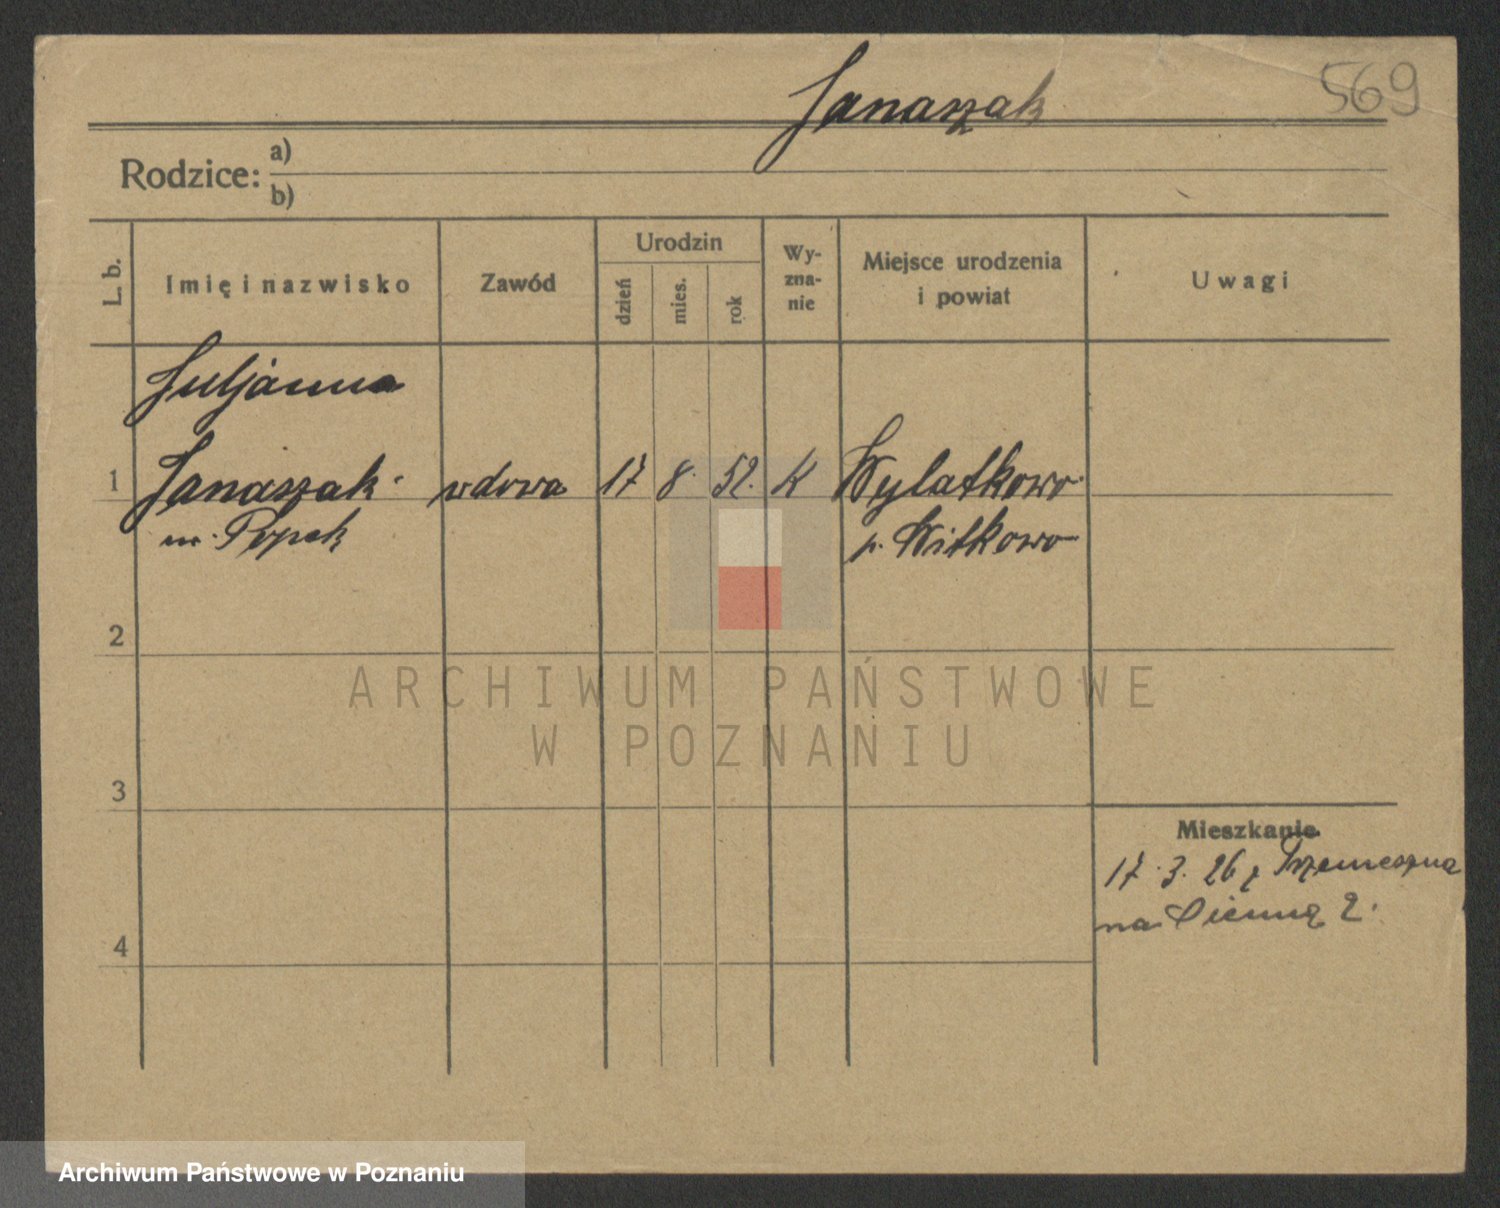 Janaszak
569
Rodzice: a)
b)
L. b.
Imię i nazwisko
Zawód
Urodzin
dzień
mies.
rok
Wy-
zna-
nie
Miejsce urodzenia
i powiat
Uwagi
Juljanna
1 Janaszak wdowa 17 8. 52. K Wylatkowo
p. Witkowo
2
ARCHIWUM PAŃSTWOWE
W POZNANIU
3
Mieszkanie
17.3.26 z Trzemeszna
na Sienną 2.
4
Archiwum Państwowe w Poznaniu